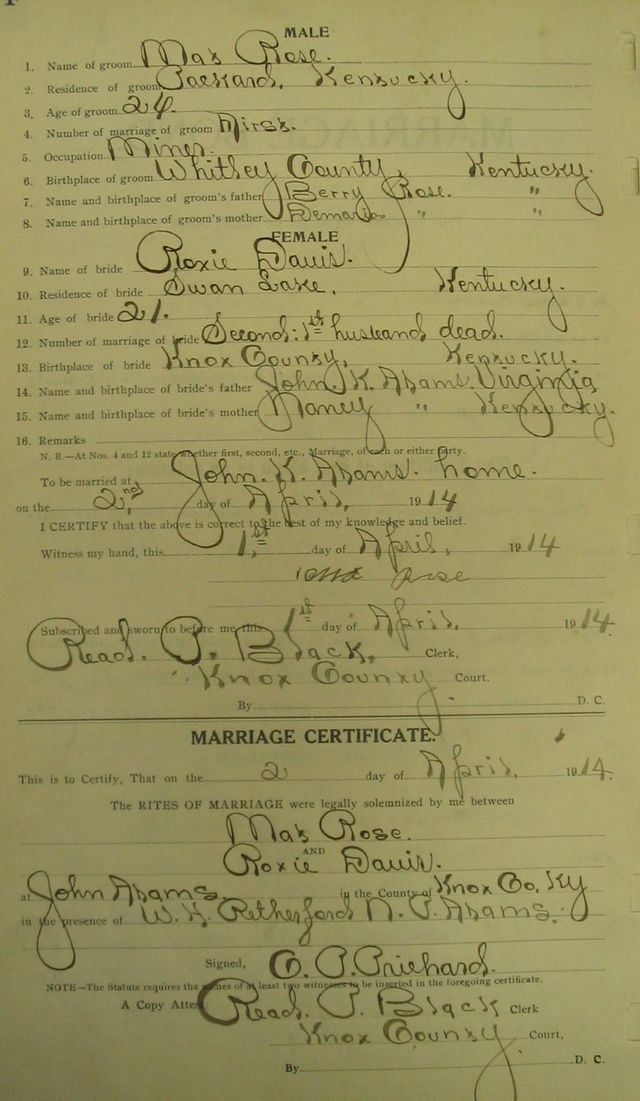 MALE
1. Name of groom Mat Rose.
2. Residence of groom Packard, Kentucky.
3. Age of groom 24.
4. Number of marriage of groom First.
5. Occupation Miner.
6. Birthplace of groom Whitley County, Kentucky.
7. Name and birthplace of groom's father Berry Rose. "
8. Name and birthplace of groom's mother " "
FEMALE
9. Name of bride Roxie Davis.
10. Residence of bride Swan Lake, Kentucky.
11. Age of bride 21.
12. Number of marriage of bride Second: 1st husband dead.
13. Birthplace of bride Knox County, Kentucky.
14. Name and birthplace of bride's father John K. Adams. Virginia
15. Name and birthplace of bride's mother Nancy " Kentucky.
16. Remarks
N. B.—At Nos. 4 and 12 state whether first, second, etc., Marriage, of each or either party.
To be married at John. K. Adams. home.
on the 2nd, day of April, 1914
I CERTIFY that the above is correct to the best of my knowledge and belief.
Witness my hand, this 1st day of April, 1914
Rose
Subscribed and sworn to before me this 1st day of April, 1914.
Read. P. Black, Clerk,
Knox County Court.
By D. C.
MARRIAGE CERTIFICATE.
This is to Certify, That on the 2 day of April. 1914.
The RITES OF MARRIAGE were legally solemnized by me between
Mat Rose.
AND
Roxie Davis.
at John Adams. in the County of Knox Co, Ky
in the presence of W. H. Retherford N. P. Adams.
Signed, C. P. Prichard.
NOTE—The Statute requires the names of at least two witnesses to be inserted in the foregoing certificate.
A Copy Attest: Read. P. Black Clerk
Knox County Court,
By D. C.